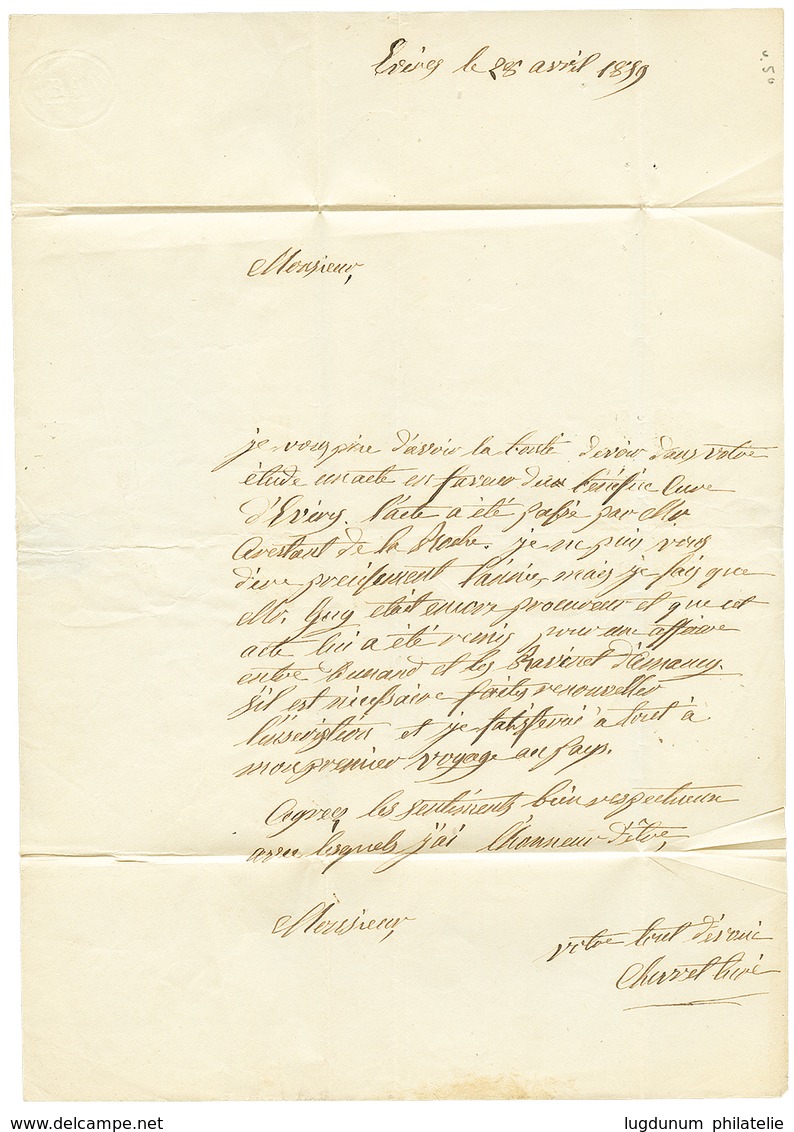 Evires le 28 avril 1859
v. 50
Monsieur,
je vous prie d'avoir la bonté de voir dans votre
étude un acte en faveur du bénéfice Cure
d'Evires. l'acte a été passé par Mr
de la Roche. je ne puis vous
dire precisement l'année, mais je sais que
Mr. Guy était encore procureur et que cet
acte lui a été remis pour une affaire
entre et les Ravinet d'amancy
s'il est nécessaire faites renouveller
l'inscription et je satisferai a tout à
mon premier voyage au pays.
Agreez les sentiments bien respectueux
avec lesquels j'ai l'honneur d'être,
Monsieur,
votre tout dévoué
Curé
www.delcampe.net
lugdunum philatelie